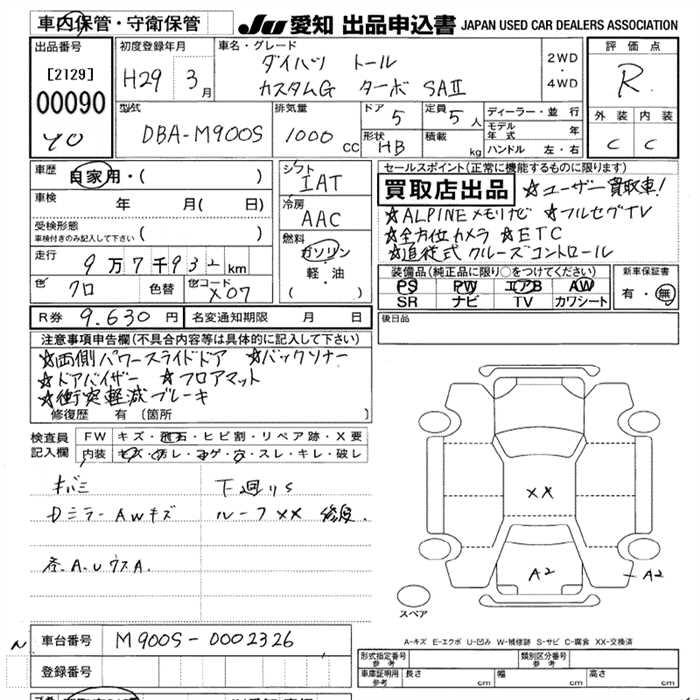 車内保管・守衛保管
JU 愛知 出品申込書 JAPAN USED CAR DEALERS ASSOCIATION
出品番号
[2129]
00090
初度登録年月
H29年 3月
車名・グレード
ダイハツ トール
カスタムG ターボ SAⅡ
2WD
・
4WD
評価点
R
外装 内装
C C
型式
DBA-M900S
排気量
1000 cc
ドア
5
定員
5人
形状
HB
積載
kg
ディーラー・並行
モデル年式 年
ハンドル 左・右
車歴
自家用・( )
車検
年 月( 日)
受検形態
車検付きのみ記入して下さい ( )
走行
9万7千932km
色
クロ
色替
色コード
X07
R券 9.630円
名変通知期限 月 日
シフト
IAT
冷房
AAC
燃料
ガソリン
軽・油
( )
セールスポイント(正常に機能するものに限ります)
買取店出品 ☆ユーザー買取車!
☆ALPINEメモリナビ ☆フルセグTV
☆全方位カメラ ☆ETC
☆追従式クルーズコントロール
装備品(純正品に限り○をつけてください)
PS PW エアB AW
SR ナビ TV カワシート
新車保証書
有・無
後日品
注意事項申告欄(不具合内容等は具体的に記入して下さい)
☆両側パワースライドドア ☆バックソナー
☆ドアバイザー ☆フロアマット
☆衝突軽減ブレーキ
修復歴 有 〔箇所 〕
検査員記入欄
FW キズ・飛石・ヒビ割・リペア跡・X要
内装 キズ・汚レ・コゲ・穴・スレ・キレ・破レ
キバミ 下廻りS
Dミラー AWキズ ルーフXX 修復。
XX
A2
A2
スペア
A-キズ E-エクボ U-凹み W-補修跡 S-サビ C-腐食 XX-交換済
車台番号 M900S-0002326
登録番号
型式指定番号 参考
類別区分番号 参考
車庫証明用 参考 長さ cm 幅 cm 高さ cm